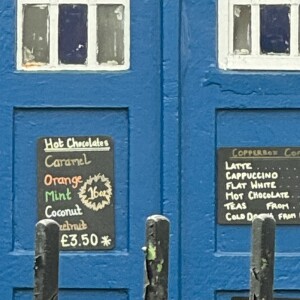 Hot Chocolates
Caramel
Orange
Mint
16oz
Coconut
£3.50 *
COPPERBOX
LATTE
CAPPUCCINO
FLAT WHITE
HOT CHOCOLATE
TEAS FROM
COLD FROM